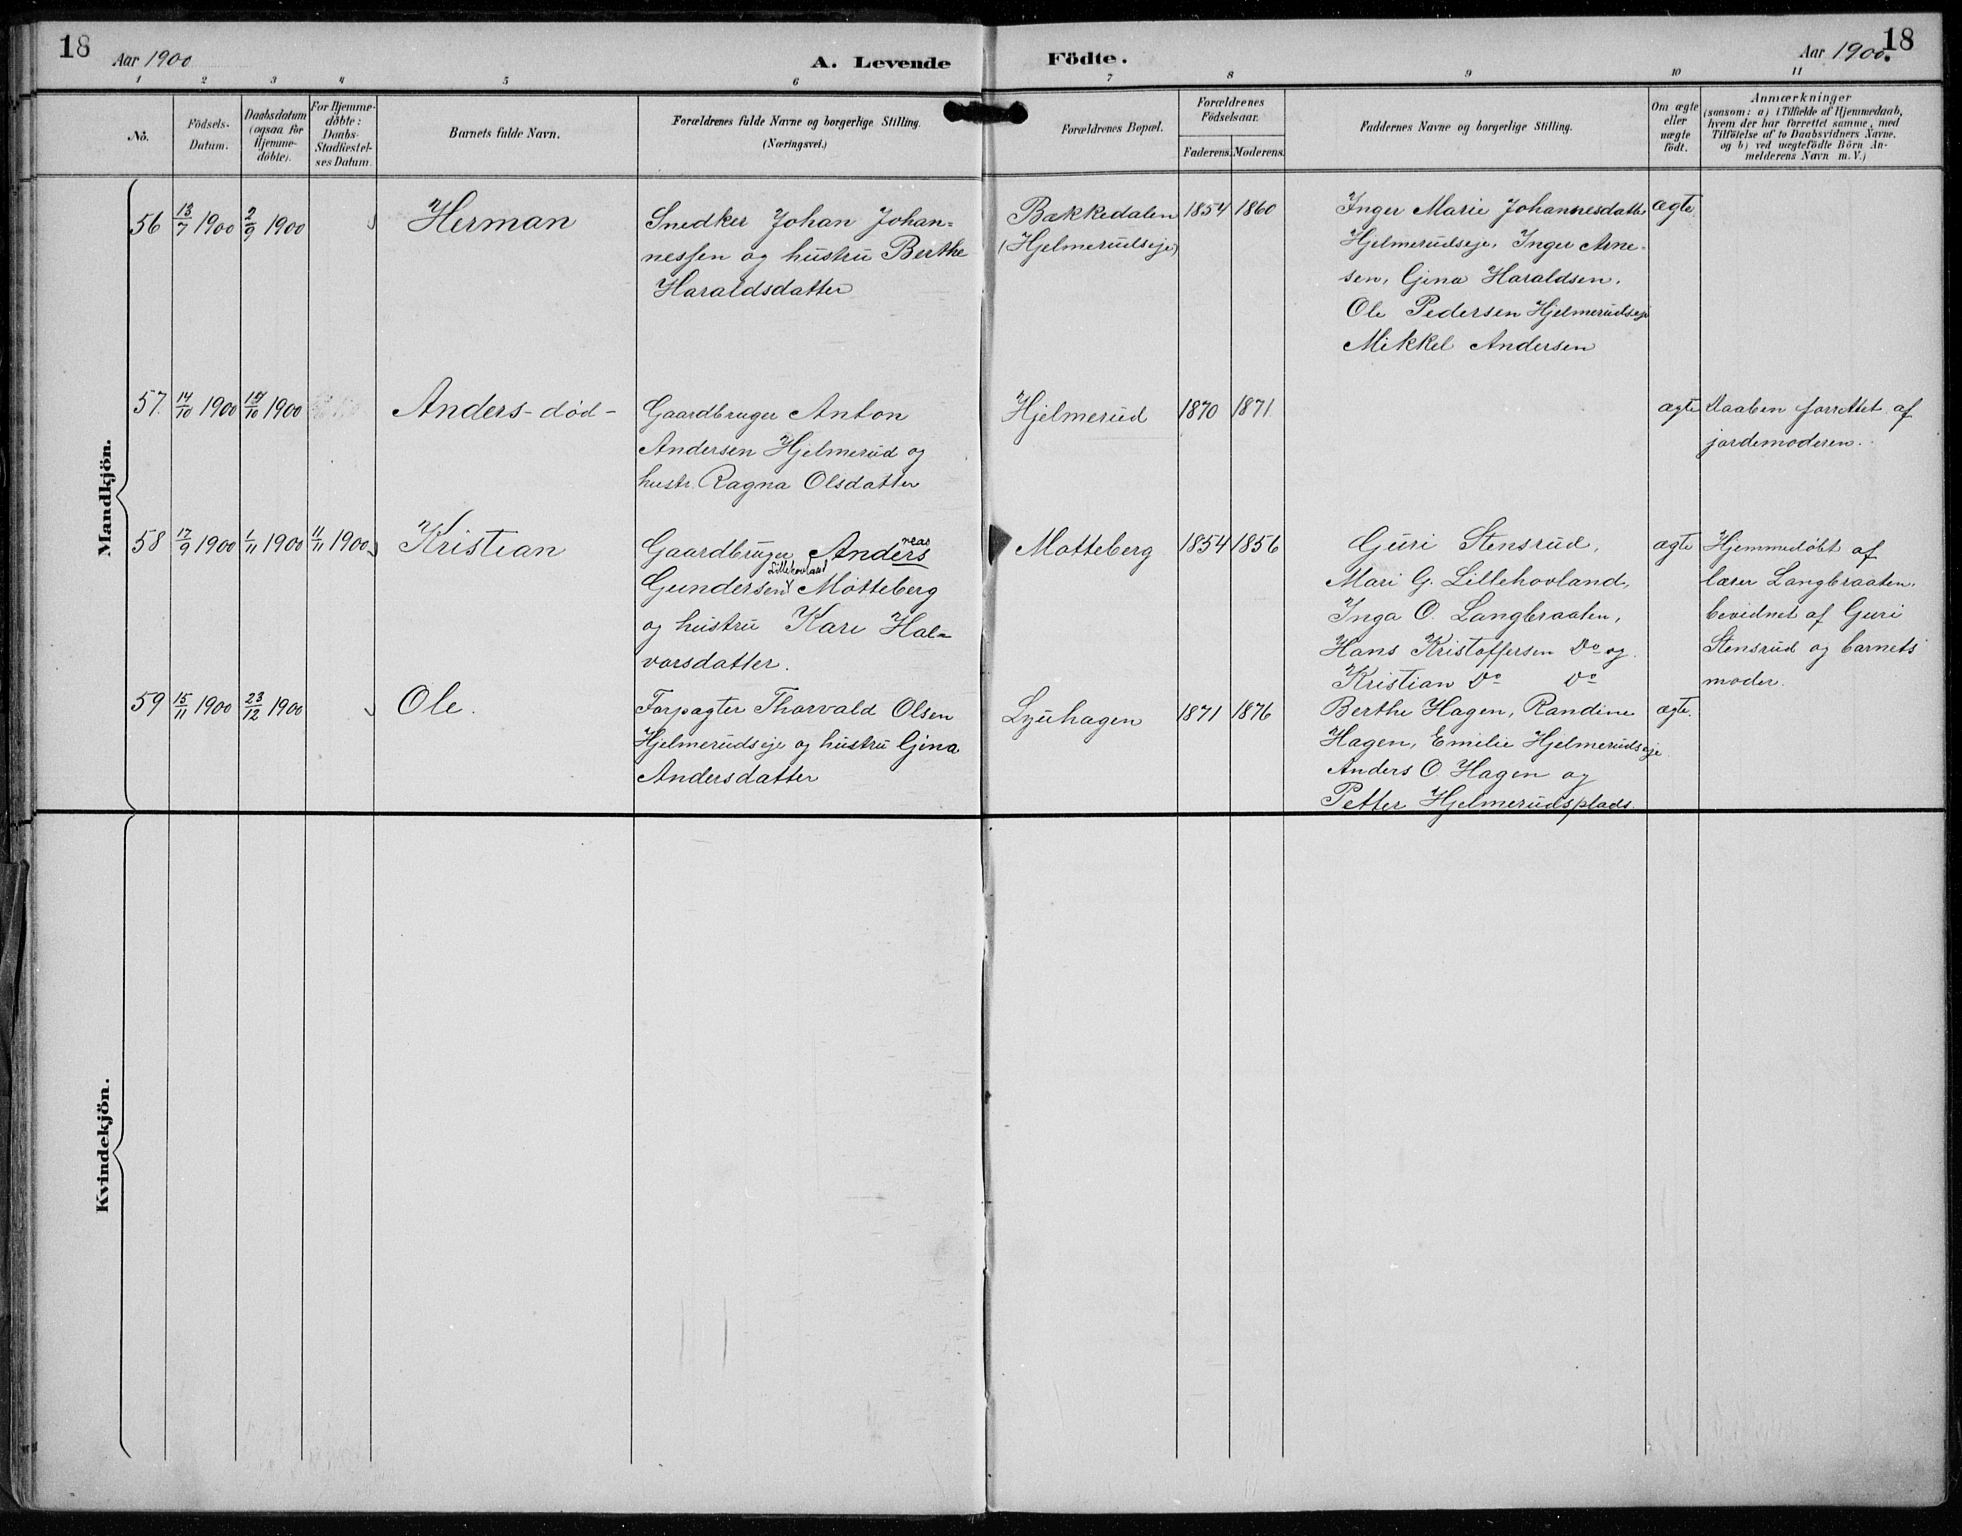 18
Aar 1900
A. Levende
Födte.
Aar 1900.
18
1 2 3 4 5 6 7 8 9 10 11
No.
Födsels-
Datum.
Daabsdatum
(ogsaa for
Hjemme-
döbte).
For Hjemme-
döbte:
Daabs-
Stadfæstel-
ses Datum.
Barnets fulde Navn.
Forældrenes fulde Navne og borgerlige Stilling.
(Næringsvei.)
Forældrenes Bopæl.
Forældrenes
Födselsaar.
Faderens. Moderens.
Faddernes Navne og borgerlige Stilling.
Om ægte
eller
uægte
födt.
Anmærkninger
(saasom: a) i Tilfælde af Hjemmedaab,
hvem der har forrettet samme, med
Tilföielse af to Daabsvidners Navne.
og b) ved uægtefödte Börn An-
melderens Navn m. V.)
Mandkjön.
56 13/7 1900 2/9 1900
Herman
Snedker Johan Johan-
nessen og hustru Berthe
Haraldsdatter
Bækkedalen
(Hjelmerudseje)
1854 1860
Inger Marie Johannesdatter
Hjelmerudseje, Inger Arne-
sen, Gina Haraldsen,
Ole Pedersen Hjelmerudseje
Mikkel Andersen
ægte
57. 14/10 1900 14/10 1900
Anders - død -
Gaardbruger Anton
Andersen Hjelmerud og
hustr. Ragna Olsdatter
Hjelmerud
1870 1871
ægte
Daaben forrettet af
jordemoderen.
58 17/9 1900 1/11 1900 11/11 1900
Kristian
Gaardbruger Anders
reas
Lillehovland
Gundersen Motteberg
og hustru Kari Hal-
vorsdatter.
Motteberg
1854 1856
Guri Stensrud,
Mari G. Lillehovland,
Inga O. Langbraaten,
Hans Kristoffersen Do og
Kristian Do Do
ægte
Hjemmedøbt af
lærer Langbraaten,
bevidnet af Guri
Stensrud og barnets
moder.
59 15/11 1900 23/12 1900
Ole.
Forpagter Thorvald Olsen
Hjelmerudseje og hustru Gina
Andersdatter
Lyuhagen
1871 1876
Berthe Hagen, Randine
Hagen, Emilie Hjelmerudseje
Anders O. Hagen og
Petter Hjelmerudsplads.
ægte.
Kvindekjön.